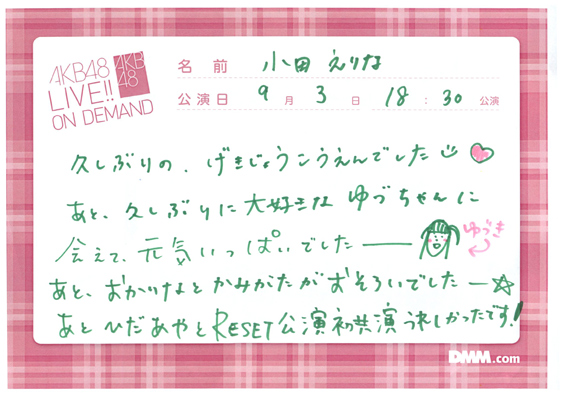 AKB48
LIVE!!
ON DEMAND
AKB
48
名前 小田えりな
公演日 9月3日 18:30公演
久しぶりの、げきじょうこうえんでした
あと、久しぶりに大好きなゆづちゃんに
会えて、元気いっぱいでした——
ゆづき
あと、おかりなとかみがたがおそろいでした—☆
あとひだあやとRESET公演初共演うれしかったです!
DMM.com